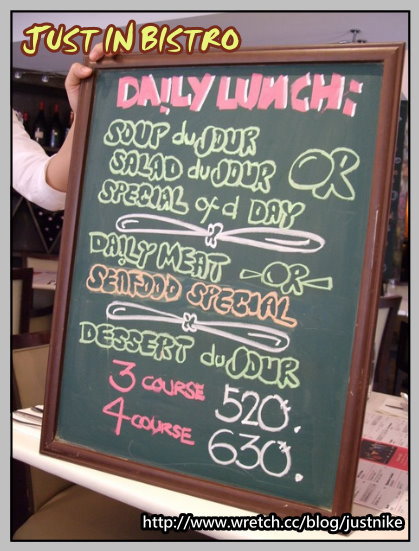 JUST IN BISTRO
DAILY LUNCH:
SOUP du JOUR
SALAD du JOUR OR
SPECIAL of d DAY
DAILY MEAT -OR-
SEAFOOD SPECIAL
DESSERT du JOUR
3 COURSE 520.
4 COURSE 630.
http://www.wretch.cc/blog/justnike